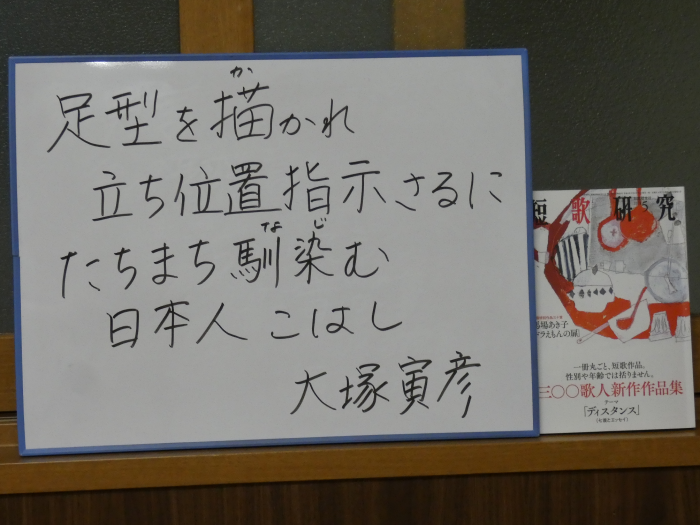 足型を描かれ
立ち位置指示さるに
たちまち馴染む
日本人こはし
大塚寅彦
短歌研究
馬場あき子
一冊丸ごと、短歌作品。
性別や年齢では括りません。
三〇〇歌人新作作品集
テーマ
「ディスタンス」